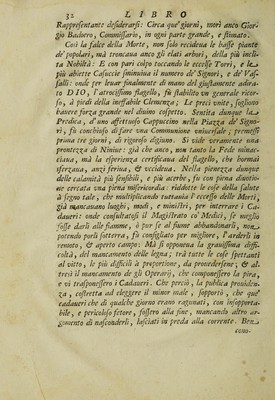 32 LIBRO
Rappresentante desiderarsi: Circa que' giorni, morì anco Gior-
gio Badoero, Commissario, in ogni parte grande, e stimato.
Così la falce della Morte, non solo recideua le basse piante
de' popolari, mà troncaua anco gli elati arbori, della più incli-
ta Nobiltà: E con pari colpo toccando le eccelse Torri, e le
più abiette Casuccie sminuiua il numero de' Signori, e de' Vas-
salli: onde per leuar finalmente di mano del giustamente adira-
to DIO, l'atrocissimo flagello, fù stabilito con generale ricor-
so, à piedi della ineffabile Clemenza; Le preci vnite, sogliono
hauere forza grande nel diuino cospetto. Sentita dunque la
Predica, d'vno affettuoso Cappuccino nella Piazza de' Signo-
ri, fù conchiuso di fare vna Communione vniuersale, premessi
prima tre giorni, di rigoroso digiuno. Si vide veramente vna
prontezza di Niniue: già che anco, non tanto la Fede minac-
ciaua, mà la esperienza certificaua del flagello, che hormai
sferzaua, anzi feriua, & vccideua. Nella pienezza dunque
delle calamità più sensibili, e più acerbe, fù con piena diuotio-
ne cercata vna piena misericordia: ridotte le cose della salute
à segno tale, che multiplicando tuttauia l'eccesso delle Morti,
già mancauano luoghi, modi, e ministri, per interrare i Ca-
daueri: onde consultatosi il Magistrato co' Medici, se meglio
fosse darli alle fiamme, ò pur se al fiume abbandonarli, non
potendo porli sotterra, fù consigliato per migliore, l'arderli in
remoto, & aperto campo: Mà si opponeua la grauissima diffi-
coltà, del mancamento delle legna, trà tutte le cose spettanti
al vitto, le più difficili à proportione, da prouedersene, & al-
tresì il mancamento de gli Operarij, che componessero la pira,
e vi trasponessero i Cadaueri. Che perciò, la publica prouiden-
za, costretta ad eleggere il minor male, sopportò, che que'
cadaueri che di qualche giorno erano ragunati, con insopporta-
bile, e pericoloso fetore, fossero alla fine, mancando altro ar-
gomento di nasconderli, lasciati in preda alla corrente. Ben
cono-